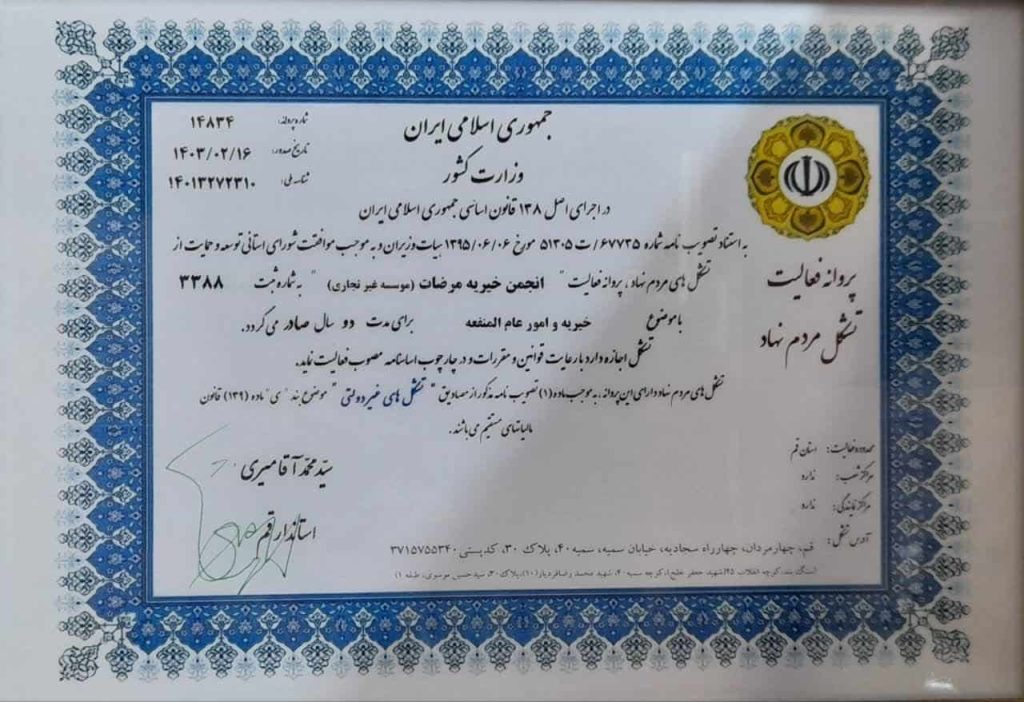 جمهوری اسلامی ایران
وزارت کشور
شماره پروانه: ۱۴۸۳۴
تاریخ صدور: ۱۴۰۳/۰۲/۱۶
شناسه ملی: ۱۴۰۱۳۲۷۲۳۱۰
در اجرای اصل ۱۳۸ قانون اساسی جمهوری اسلامی ایران
به استناد تصویب نامه شماره ۶۷۷۳۵/ت ۵۱۳۰۵ مورخ ۱۳۹۵/۰۶/۰۶ هیات وزیران و به موجب موافقت شورای استانی توسعه و حمایت از
تشکل های مردم نهاد، پروانه فعالیت " انجمن خیریه مرضات (موسسه غیر تجاری) " به شماره ثبت ۳۳۸۸
با موضوع خیریه و امور عام المنفعه برای مدت دو سال صادر می گردد.
تشکل اجازه دارد با رعایت قوانین و مقررات و در چارچوب اساسنامه مصوب فعالیت نماید.
تشکل های مردم نهاد دارای این پروانه، به موجب ماده (۱) تصویب نامه مذکور از مصادیق " تشکل های غیردولتی " موضوع بند "ی" ماده (۱۳۹) قانون
مالیاتهای مستقیم می باشند.
پروانه فعالیت
تشکل مردم نهاد
سید محمد آقامیری
استاندار قم
محدوده فعالیت: استان قم
مراکز شعب: ندارد
مراکز نمایندگی: ندارد
آدرس تشکل: قم، چهارمردان، چهارراه سجادیه، خیابان سمیه، سمیه ۴۰، پلاک ۳۰، کدپستی ۳۷۱۵۷۵۵۳۴۰
کوچه سمیه ۴۰، شهید محمد رضا پلاک ۳۰، سید حسین موسوی، طبقه ۱)